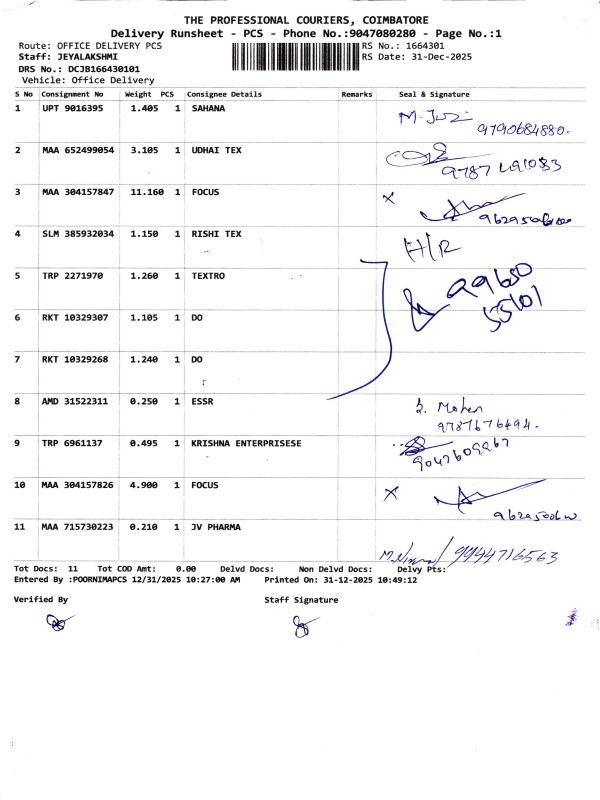 THE PROFESSIONAL COURIERS, COIMBATORE
Delivery Runsheet - PCS - Phone No.:9047080280 - Page No.:1
Route: OFFICE DELIVERY PCS RS No.: 1664301
Staff: JEYALAKSHMI RS Date: 31-Dec-2025
DRS No.: DCJB166430101
Vehicle: Office Delivery
S No Consignment No Weight PCS Consignee Details Remarks Seal & Signature
1 UPT 9016395 1.405 1 SAHANA
9790684880.
2 MAA 652499054 3.105 1 UDHAI TEX
3 MAA 304157847 11.160 1 FOCUS X
4 SLM 385932034 1.150 1 RISHI TEX H/R
5 TRP 2271970 1.260 1 TEXTRO
99650
55101
6 RKT 10329307 1.105 1 DO
7 RKT 10329268 1.240 1 DO
8 AMD 31522311 0.250 1 ESSR
Mohan
9787676494.
9 TRP 6961137 0.495 1 KRISHNA ENTERPRISESE
10 MAA 304157826 4.900 1 FOCUS X
11 MAA 715730223 0.210 1 JV PHARMA
9944716563
Tot Docs: 11 Tot COD Amt: 0.00 Delvd Docs: Non Delvd Docs: Delvy Pts:
Entered By :POORNIMAPCS 12/31/2025 10:27:00 AM Printed On: 31-12-2025 10:49:12
Verified By Staff Signature